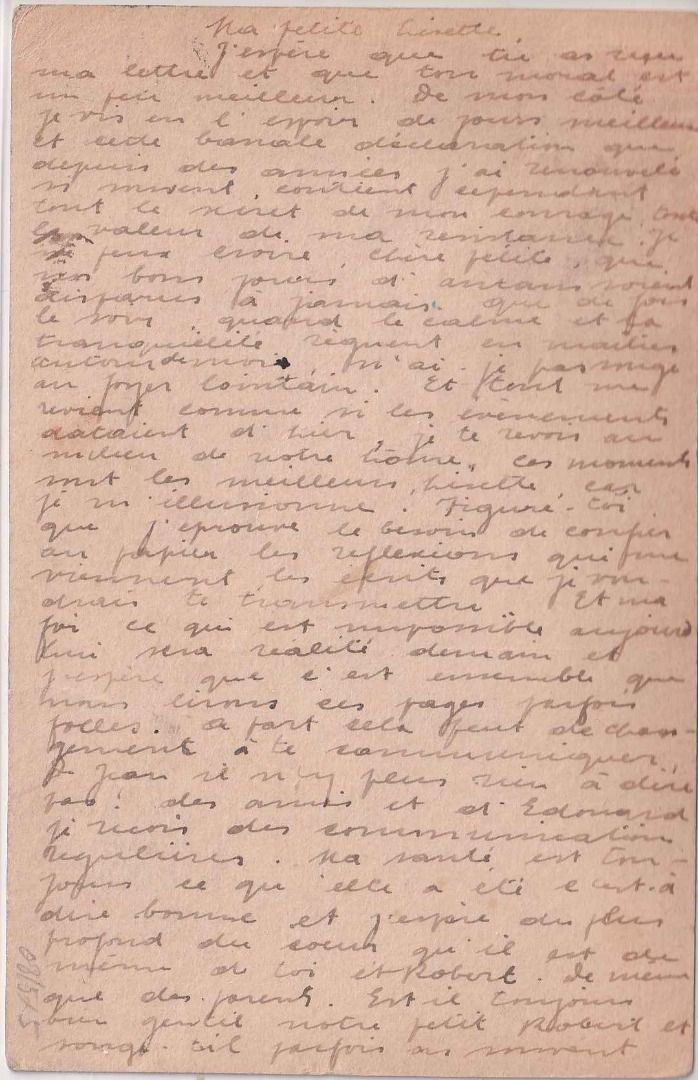 Ma petite Lisette.
J'espère que tu as reçu
ma lettre et que ton moral est
un peu meilleur. De mon côté
je vis en l'espoir de jours meilleurs
et cette banale déclaration que
depuis des années j'ai renouvelé
si souvent, contient cependant
tout le secret de mon courage, toute
la valeur de ma resistance. Je
ne peux croire, chère petite, que
nos bons jours d'antan soient
disparus à jamais. Que de fois
le soir, quand le calme et la
tranquillité regnent en maitres
autour de moi, n'ai-je pas songé
au foyer lointain. Et tout me
revient comme si les évènements
dataient d'hier, je te revois au
milieu de notre home. Ces moments
sont les meilleurs, Lisette, car
je m'illusionne. Figure-toi
que j'éprouve le besoin de confier
au papier les reflexions qui me
viennent les écrits que je vou-
drais te transmettre. Et ma
foi ce qui est impossible aujourd
hui sera realité demain et
j'espère que c'est ensemble que
nous lirons ces pages parfois
folles. A part cela peut de chan-
gement à te communiquer.
De Jean il n'y plus rien à dire
pas! des amis et d'Edouard
je recois des communication
regulières. Ma santé est tou-
jours ce qu'elle a été c'est-à
dire bonne et j'espère du plus
profond du coeur qu'il est de
même de toi et Robert. De meme
que des parents. Est il toujours
bien gentil notre petit Robert et
songe-t-il parfois as souvent